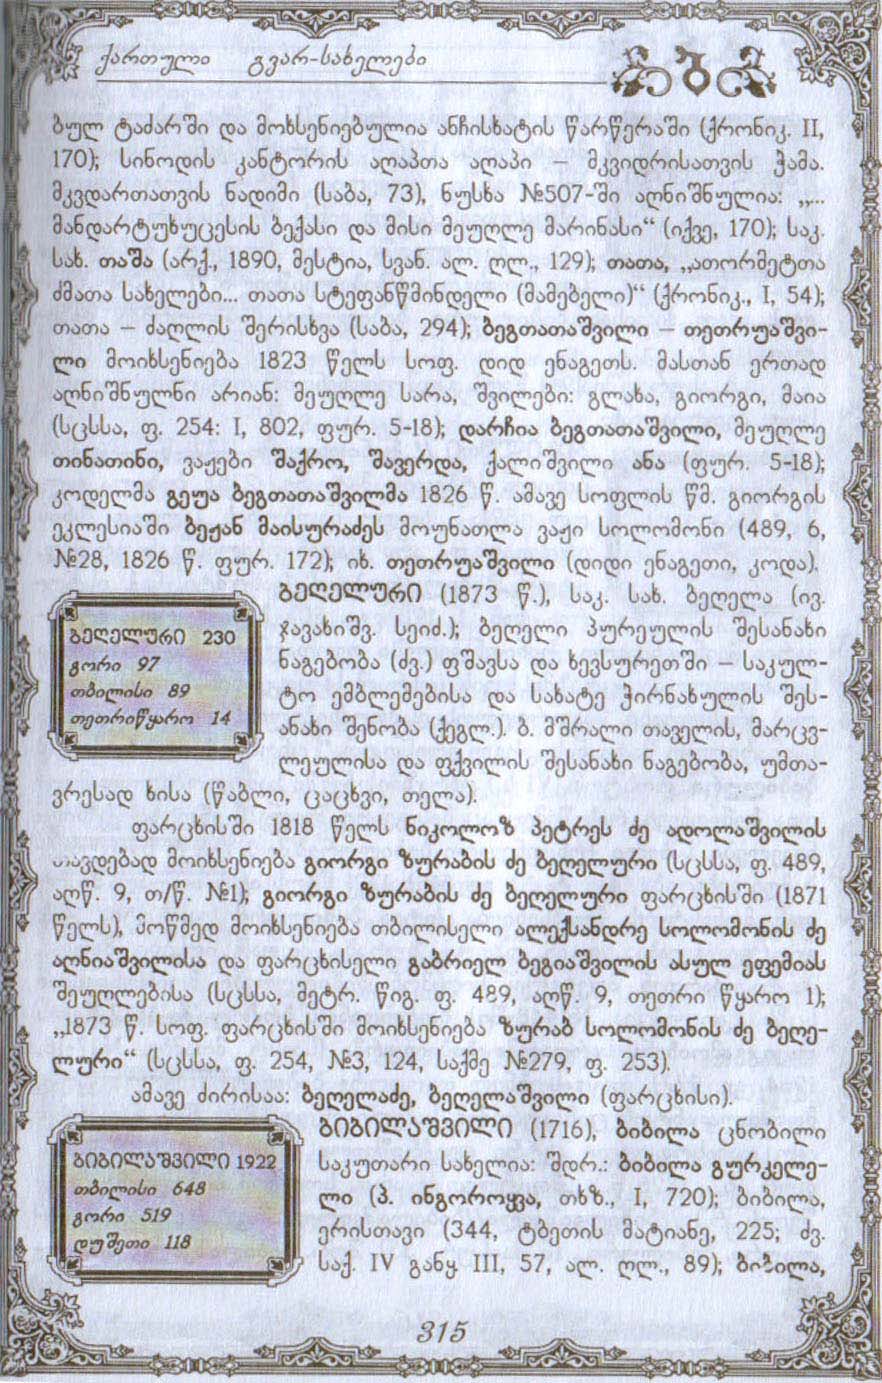 ქართული გვარ-სახელები
ბულ ტაძარში და მოხსენიებულია ანჩისხატის წარწერაში (ქრონიკ. II,
170); სინოდის კანტორის აღაპთა აღაპი – მკვიდრისათვის ჭამა.
მკვდართათვის ნადიმი (საბა, 73), ნუსხა №507-ში აღნიშნულია: „...
მანდარტუხუცესის ბექასი და მისი მეუღლე მარინასი“ (იქვე, 170); საკ.
სახ. თაშა (არქ., 1890, მესტია, სვან. ალ. ღლ., 129); თათა, „ათორმეტთა
ძმათა სახელები... თათა სტეფანწმინდელი (მამებელი)“ (ქრონიკ., I, 54);
თათა – ძაღლის შერისხვა (საბა, 294); ბეგთათაშვილი – თეთრუაშვი-
ლი მოიხსენიება 1823 წელს სოფ. დიდ ენაგეთს. მასთან ერთად
აღნიშნულნი არიან: მეუღლე სარა, შვილები: გლახა, გიორგი, მაია
(სცსსა, ფ. 254: I, 802, ფურ. 5-18); დარჩია ბეგთათაშვილი, მეუღლე
თინათინი, ვაჟები შაქრო, შავერდა, ქალიშვილი ანა (ფურ. 5-18);
კოდელმა გეუა ბეგთათაშვილმა 1826 წ. ამავე სოფლის წმ. გიორგის
ეკლესიაში ბეჟან მაისურაძეს მოუნათლა ვაჟი სოლომონი (489, 6,
№28, 1826 წ. ფურ. 172); იხ. თეთრუაშვილი (დიდი ენაგეთი, კოდა).
ბეღელური (1873 წ.), საკ. სახ. ბეღელა (ივ.
ჯავახიშვ. სეიძ.); ბეღელი პურეულის შესანახი
ნაგებობა (ძვ.) ფშავსა და ხევსურეთში – საკულ-
ტო ემბლემებისა და სახატე ჭირნახულის შეს-
ანახი შენობა (ქეგლ.). ბ. მშრალი თაველის, მარცვ-
ლეულისა და ფქვილის შესანახი ნაგებობა, უმთა-
ვრესად ხისა (წაბლი, ცაცხვი, თელა).
ბეღელური 230
გორი 97
თბილისი 89
თეთრიწყარო 14
ფარცხისში 1818 წელს ნიკოლოზ პეტრეს ძე ადოლაშვილის
თავდებად მოიხსენიება გიორგი ზურაბის ძე ბეღელური (სცსსა, ფ. 489,
აღწ. 9, თ/წ. №1); გიორგი ზურაბის ძე ბეღელური ფარცხისში (1871
წელს), მოწმედ მოიხსენიება თბილისელი ალექსანდრე სოლომონის ძე
აღნიაშვილისა და ფარცხისელი გაბრიელ ბეგიაშვილის ასულ ეფემიას
შეუღლებისა (სცსსა, მეტრ. წიგ. ფ. 489, აღწ. 9, თეთრი წყარო 1);
„1873 წ. სოფ. ფარცხისში მოიხსენიება ზურაბ სოლომონის ძე ბეღე-
ლური“ (სცსსა, ფ. 254, №3, 124, საქმე №279, ფ. 253).
ამავე ძირისაა: ბეღელაძე, ბეღელაშვილი (ფარცხისი).
ბიბილაშვილი (1716), ბიბილა ცნობილი
საკუთარი სახელია: შდრ.: ბიბილა გურკელე-
ლი (პ. ინგოროყვა, თხზ., I, 720); ბიბილა,
ერისთავი (344, ტბეთის მატიანე, 225; ძვ.
საქ. IV განყ. III, 57, ალ. ღლ., 89); ბიბილა,
ბიბილაშვილი 1922
თბილისი 648
გორი 519
დუშეთი 118
315